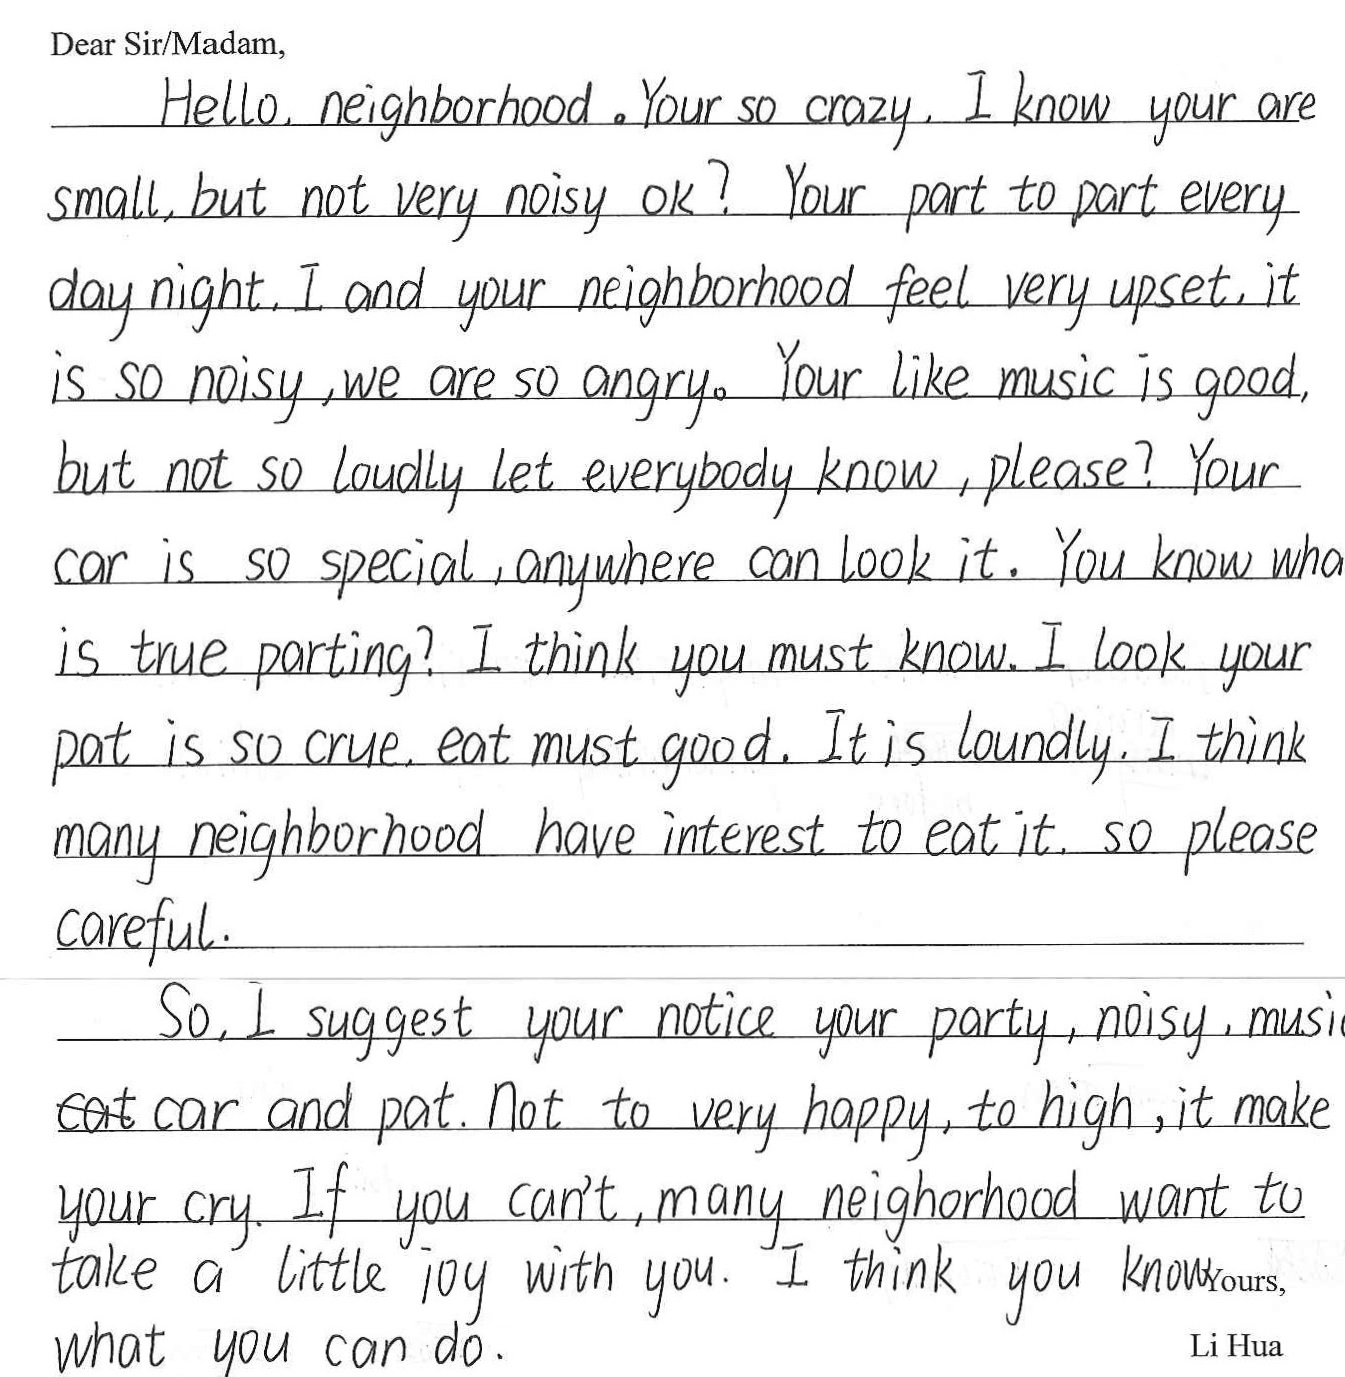 Dear Sir/Madam,
Hello, neighborhood. Your so crazy. I know your are
small, but not very noisy ok? Your part to part every
day night. I and your neighborhood feel very upset, it
is so noisy, we are so angry。 Your like music is good,
but not so loudly let everybody know, please? Your
car is so special, anywhere can look it. You know wha
is true parting? I think you must know. I look your
pat is so crue, eat must good. It is loundly. I think
many neighborhood have interest to eat it. so please
careful.
So, I suggest your notice your party, noisy, music
cat car and pat. Not to very happy, to high, it make
your cry. If you can't, many neighorhood want to
take a little joy with you. I think you know
Yours,
what you can do.
Li Hua